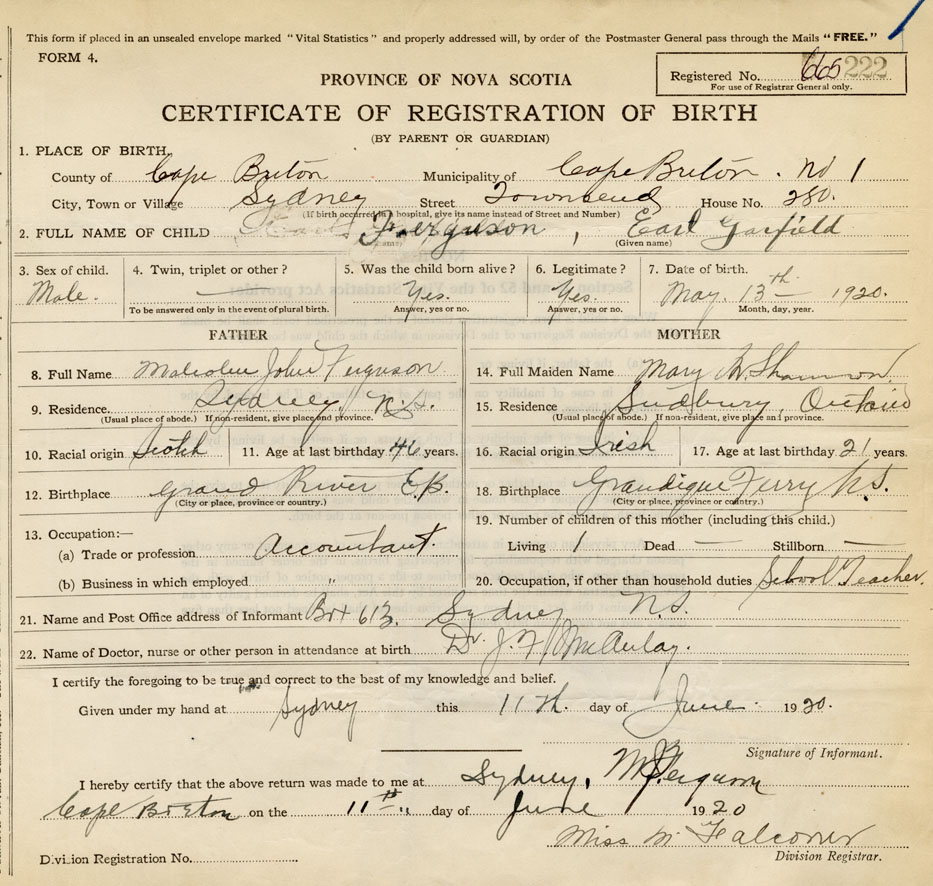 This form if placed in an unsealed envelope marked "Vital Statistics" and properly addressed will, by order of the Postmaster General pass through the Mails "FREE."
FORM 4.
Registered No. 665 222
For use of Registrar General only.
PROVINCE OF NOVA SCOTIA
CERTIFICATE OF REGISTRATION OF BIRTH
(BY PARENT OR GUARDIAN)
1. PLACE OF BIRTH,
County of Cape Breton Municipality of Cape Breton. No 1
City, Town or Village Sydney Street Townsend House No. 280.
(If birth occurred in a hospital, give its name instead of Street and Number)
2. FULL NAME OF CHILD Ferguson, Earl Garfield
(Given name)
3. Sex of child. 4. Twin, triplet or other? 5. Was the child born alive? 6. Legitimate? 7. Date of birth.
Male. — Yes. Yes. May. 13th — 1920.
To be answered only in the event of plural birth. Answer, yes or no. Answer, yes or no. Month, day, year.
FATHER MOTHER
8. Full Name Malcolm John Ferguson 14. Full Maiden Name Mary
9. Residence. Sydney, N.S. 15. Residence Sudbury, Ontario
(Usual place of abode.) If non-resident, give place and province. (Usual place of abode.) If non-resident, give place and province.
10. Racial origin Scotch 11. Age at last birthday 46 years. 16. Racial origin Irish 17. Age at last birthday 21 years.
12. Birthplace Grand River C.B. 18. Birthplace Grandique Ferry N.S.
(City or place, province or country.) (City or place, province or country.)
13. Occupation:— 19. Number of children of this mother (including this child.)
(a) Trade or profession. Accountant. Living 1 Dead — Stillborn —
(b) Business in which employed. " 20. Occupation, if other than household duties School Teacher.
21. Name and Post Office address of Informant Box 613. Sydney N.S.
22. Name of Doctor, nurse or other person in attendance at birth Dr. J. F. McAulay.
I certify the foregoing to be true and correct to the best of my knowledge and belief.
Given under my hand at Sydney this 11th. day of June 1920.
Signature of Informant.
I hereby certify that the above return was made to me at Sydney, M J Ferguson
Cape Breton on the 11th day of June 1920
Miss M Falconer
Division Registration No. Division Registrar.